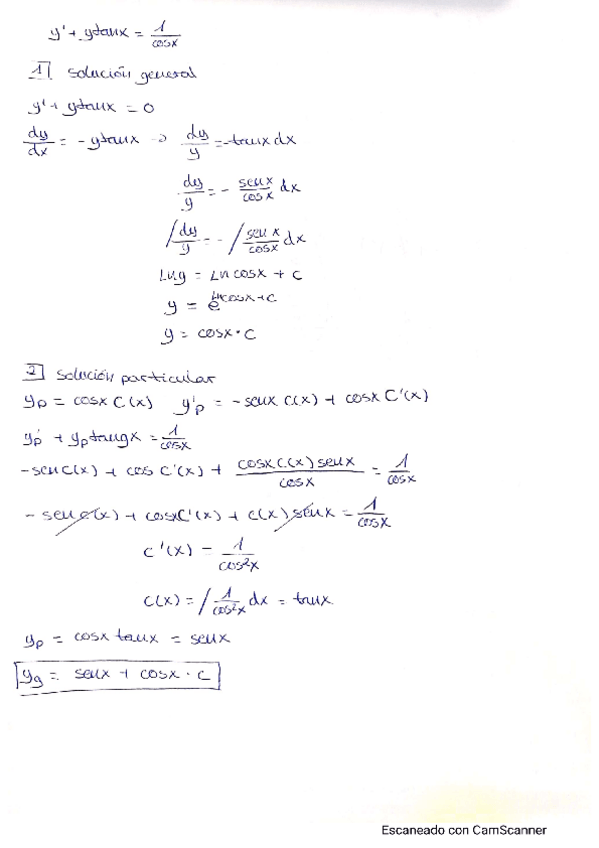 y' + y tanx = 1/cosx
1 solución general
y' + y tanx = 0
dy/dx = - y tanx → dy/y = -tanx dx
dy/y = - senx/cosx dx
∫ dy/y = - ∫ senx/cosx dx
Lny = Ln cosx + c
y = e^(Lncosx + c)
y = cosx · c
2 solución particular
yp = cosx C(x) y'p = -senx C(x) + cosx C'(x)
yp' + yp tangx = 1/cosx
-sen C(x) + cos C'(x) + cosx C(x) senx/cosx = 1/cosx
- senx C(x) + cosx C'(x) + C(x) senx = 1/cosx
C'(x) = 1/cos²x
C(x) = ∫ 1/cos²x dx = tanx
yp = cosx tanx = senx
yg = senx + cosx · c
Escaneado con CamScanner